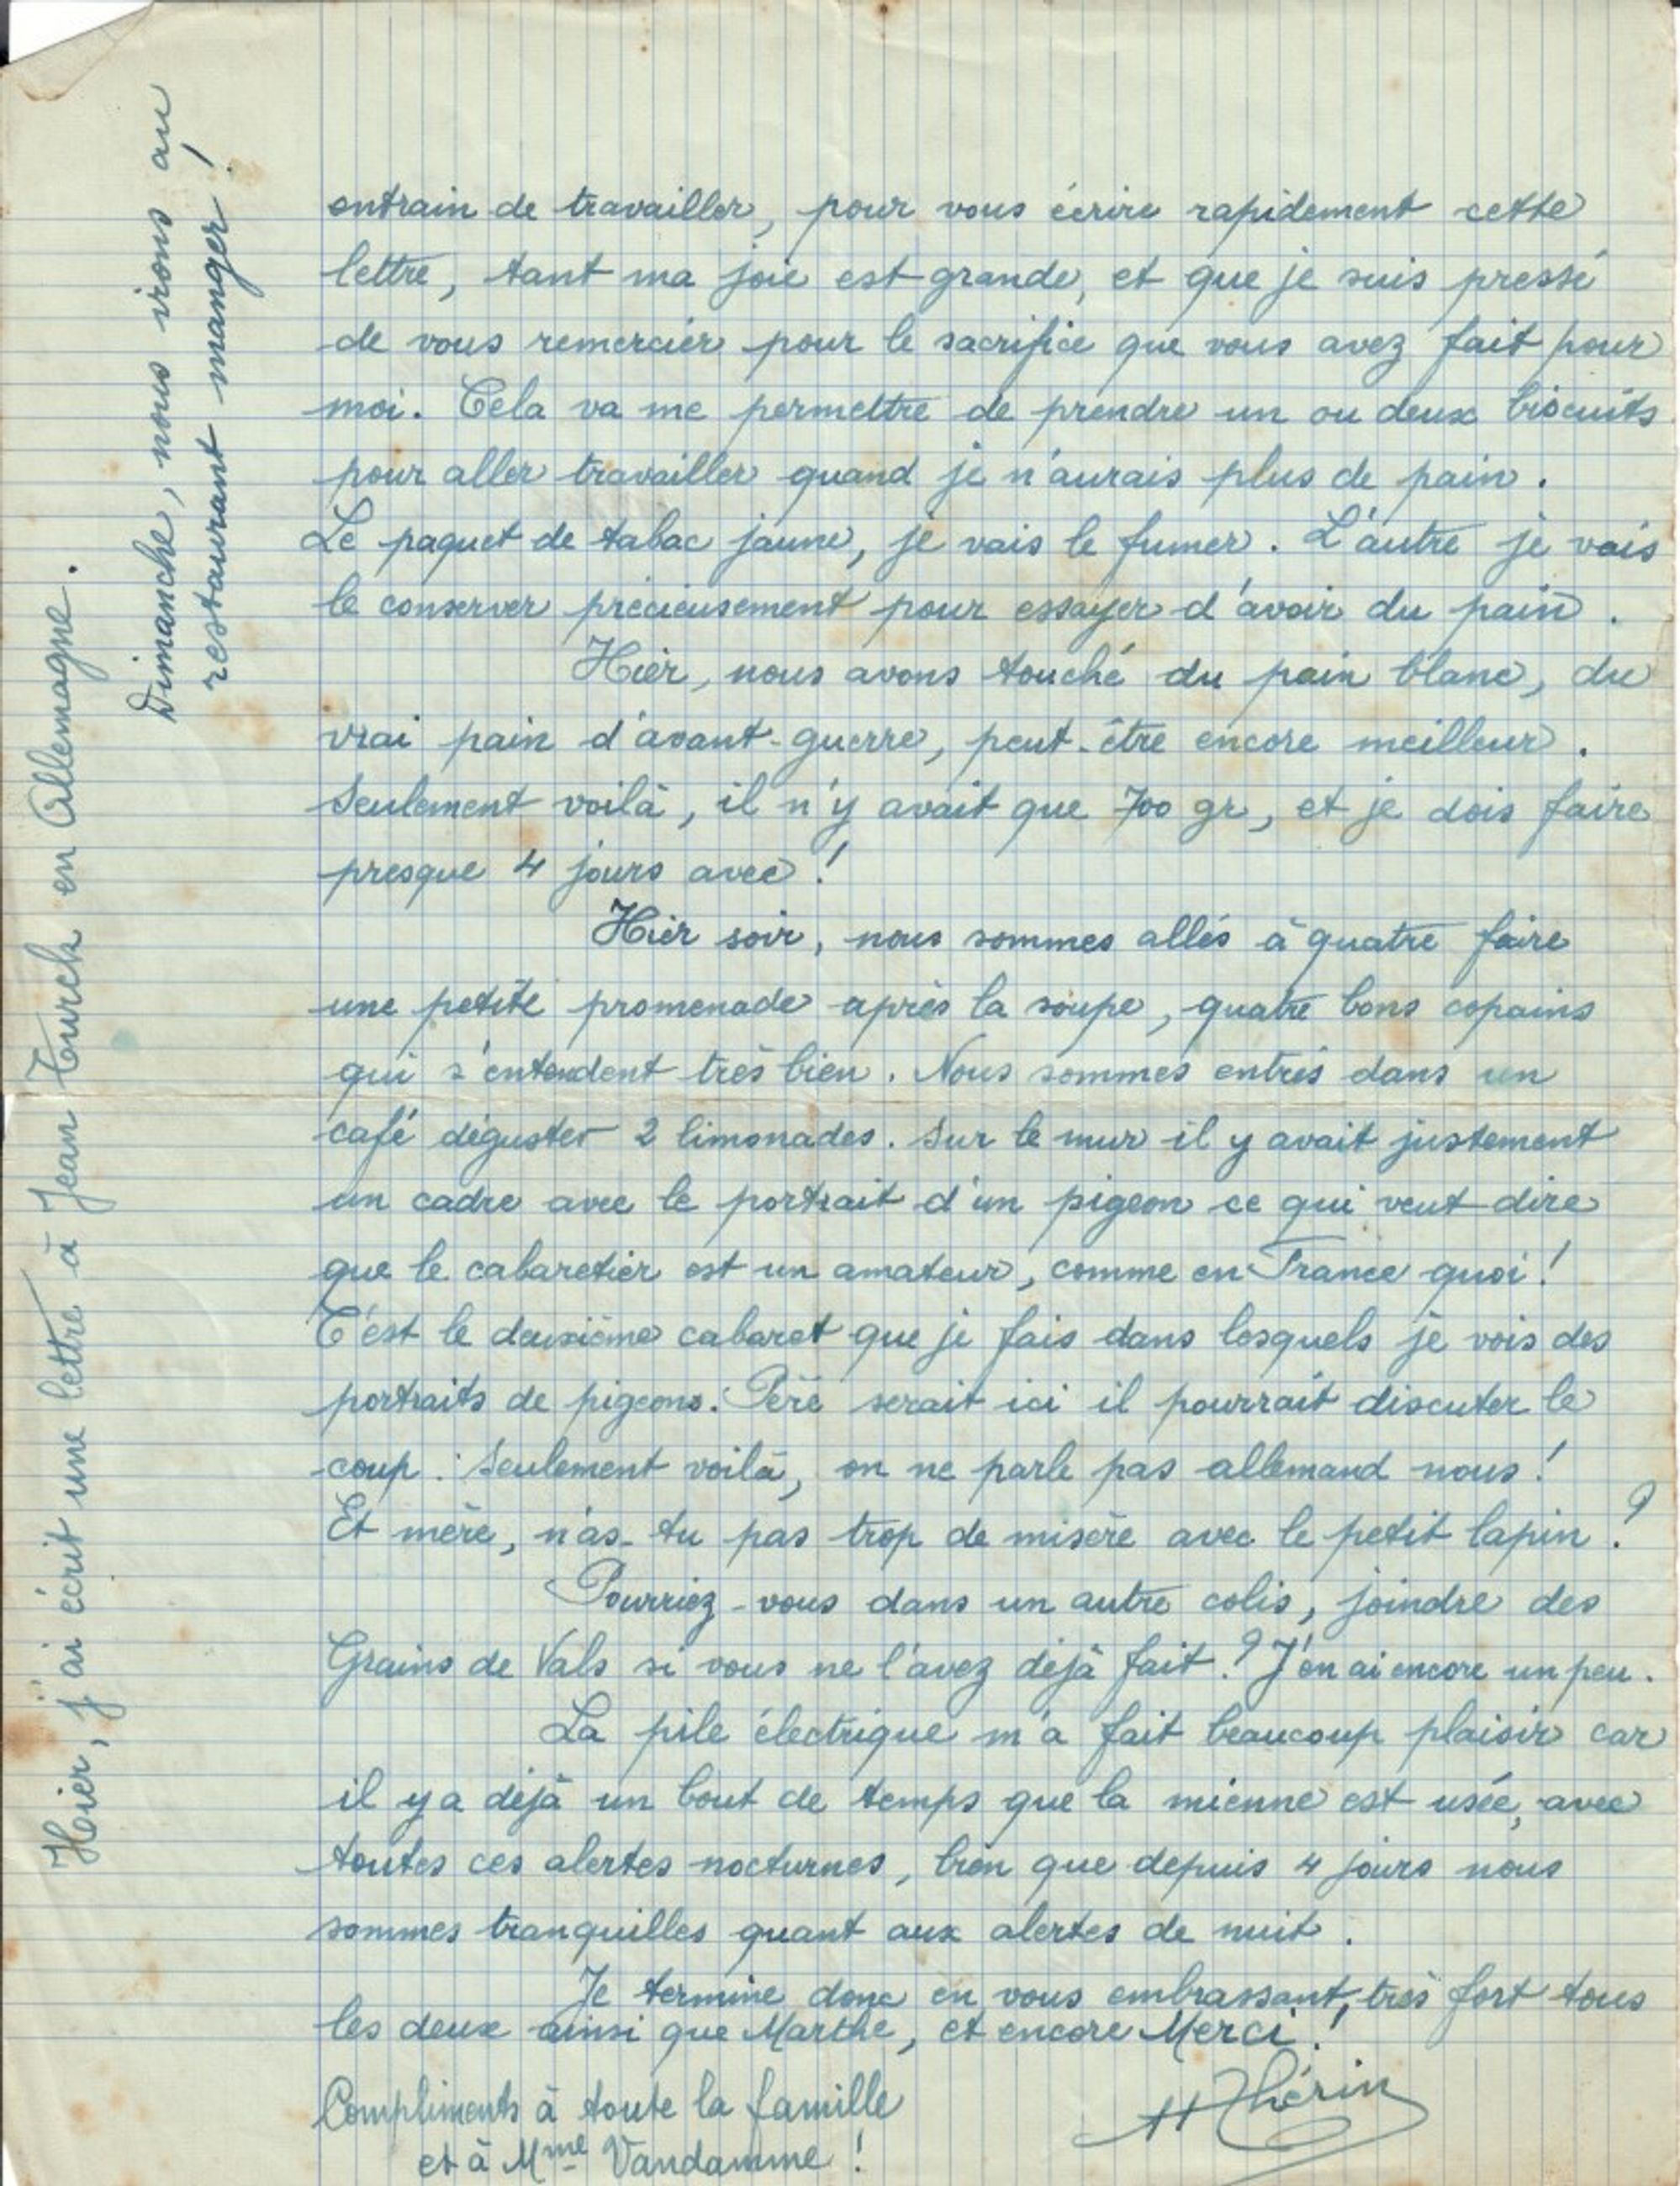 entrain de travailler, pour vous écrire rapidement cette
lettre, tant ma joie est grande, et que je suis pressé
de vous remercier pour le sacrifice que vous avez fait pour
moi. Cela va me permettre de prendre un ou deux biscuits
pour aller travailler quand je n'aurais plus de pain.
Le paquet de tabac jaune, je vais le fumer. L'autre je vais
le conserver précieusement pour essayer d'avoir du pain.
Hier, nous avons touché du pain blanc, du
vrai pain d'avant-guerre, peut-être encore meilleur.
Seulement voilà, il n'y avait que 700 gr, et je dois faire
presque 4 jours avec!
Hier soir, nous sommes allés à quatre faire
une petite promenade après la soupe, quatre bons copains
qui s'entendent très bien. Nous sommes entrés dans un
café déguster 2 limonades. Sur le mur il y avait justement
un cadre avec le portrait d'un pigeon ce qui veut dire
que le cabaretier est un amateur, comme en France quoi!
C'est le deuxième cabaret que je fais dans lesquels je vois des
portraits de pigeons. Père serait ici il pourrait discuter le
coup. Seulement voilà, on ne parle pas allemand nous!
Et mère, n'as-tu pas trop de misère avec le petit lapin?
Pourriez-vous dans un autre colis, joindre des
Grains de Vals si vous ne l'avez déjà fait? J'en ai encore un peu.
La pile électrique m'a fait beaucoup plaisir car
il y a déjà un bout de temps que la mienne est usée, avec
toutes ces alertes nocturnes, bien que depuis 4 jours nous
sommes tranquilles quant aux alertes de nuit.
Je termine donc en vous embrassant, très fort tous
les deux ainsi que Marthe, et encore Merci!
Compliments à toute la famille
et à Mme Vandamme!
Thérin
Hier, j'ai écrit une lettre à Jean Turck en Allemagne.
Dimanche, nous irons au
restaurant manger!